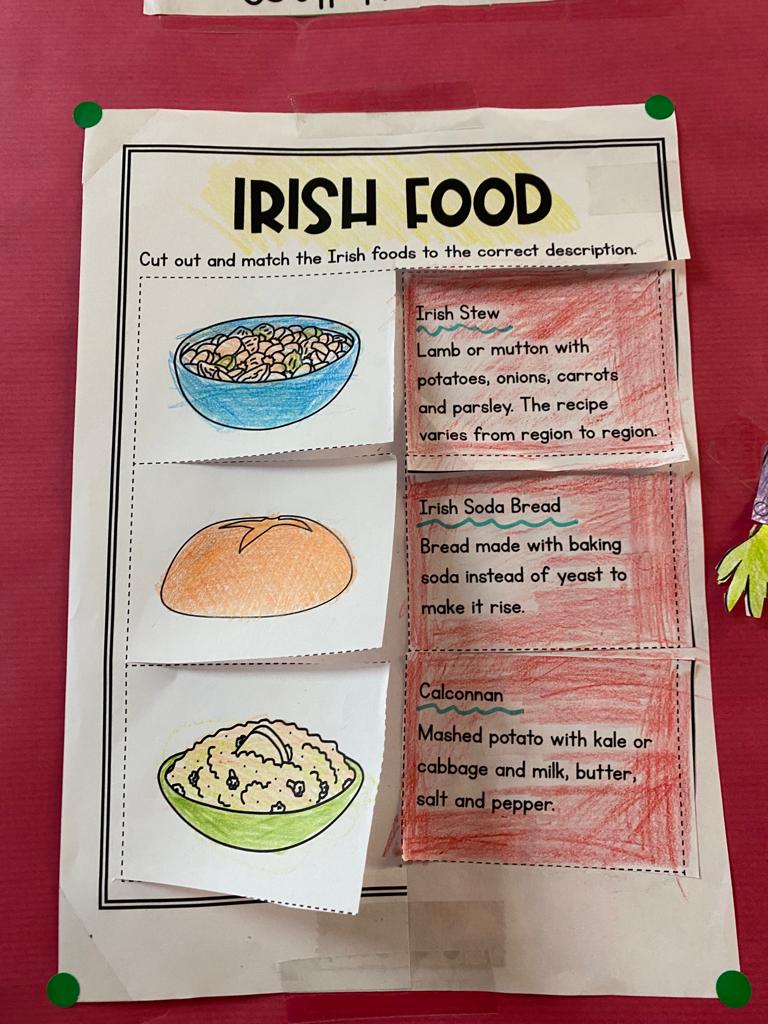 IRISH FOOD
Cut out and match the Irish foods to the correct description.
Irish Stew
Lamb or mutton with
potatoes, onions, carrots
and parsley. The recipe
varies from region to region.
Irish Soda Bread
Bread made with baking
soda instead of yeast to
make it rise.
Calconnan
Mashed potato with kale or
cabbage and milk, butter,
salt and pepper.